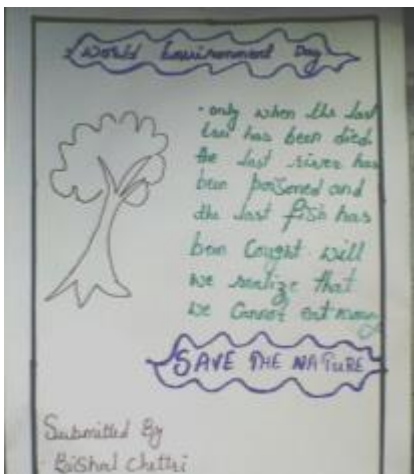 World Environment Day
- only when the last
tree has been died
the last river has
been poisoned and
the last fish has
been Cought will
we realize that
we Cannot eat money
SAVE THE NATURE
Submitted By
- Bishal Chettri